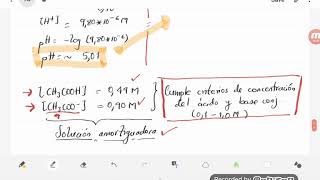 [H⁺] = 9,80*10⁻⁶ M
pH = -log (9,80*10⁻⁶)
pH = ~ 5,01
→ [CH₃COOH] = 0,49 M
→ [CH₃COO⁻] = 0,90 M
Cumple criterios de concentración
del ácido y base conj
(0,1 - 1,0 M)
Solución amortiguadora ✓
Recorded by